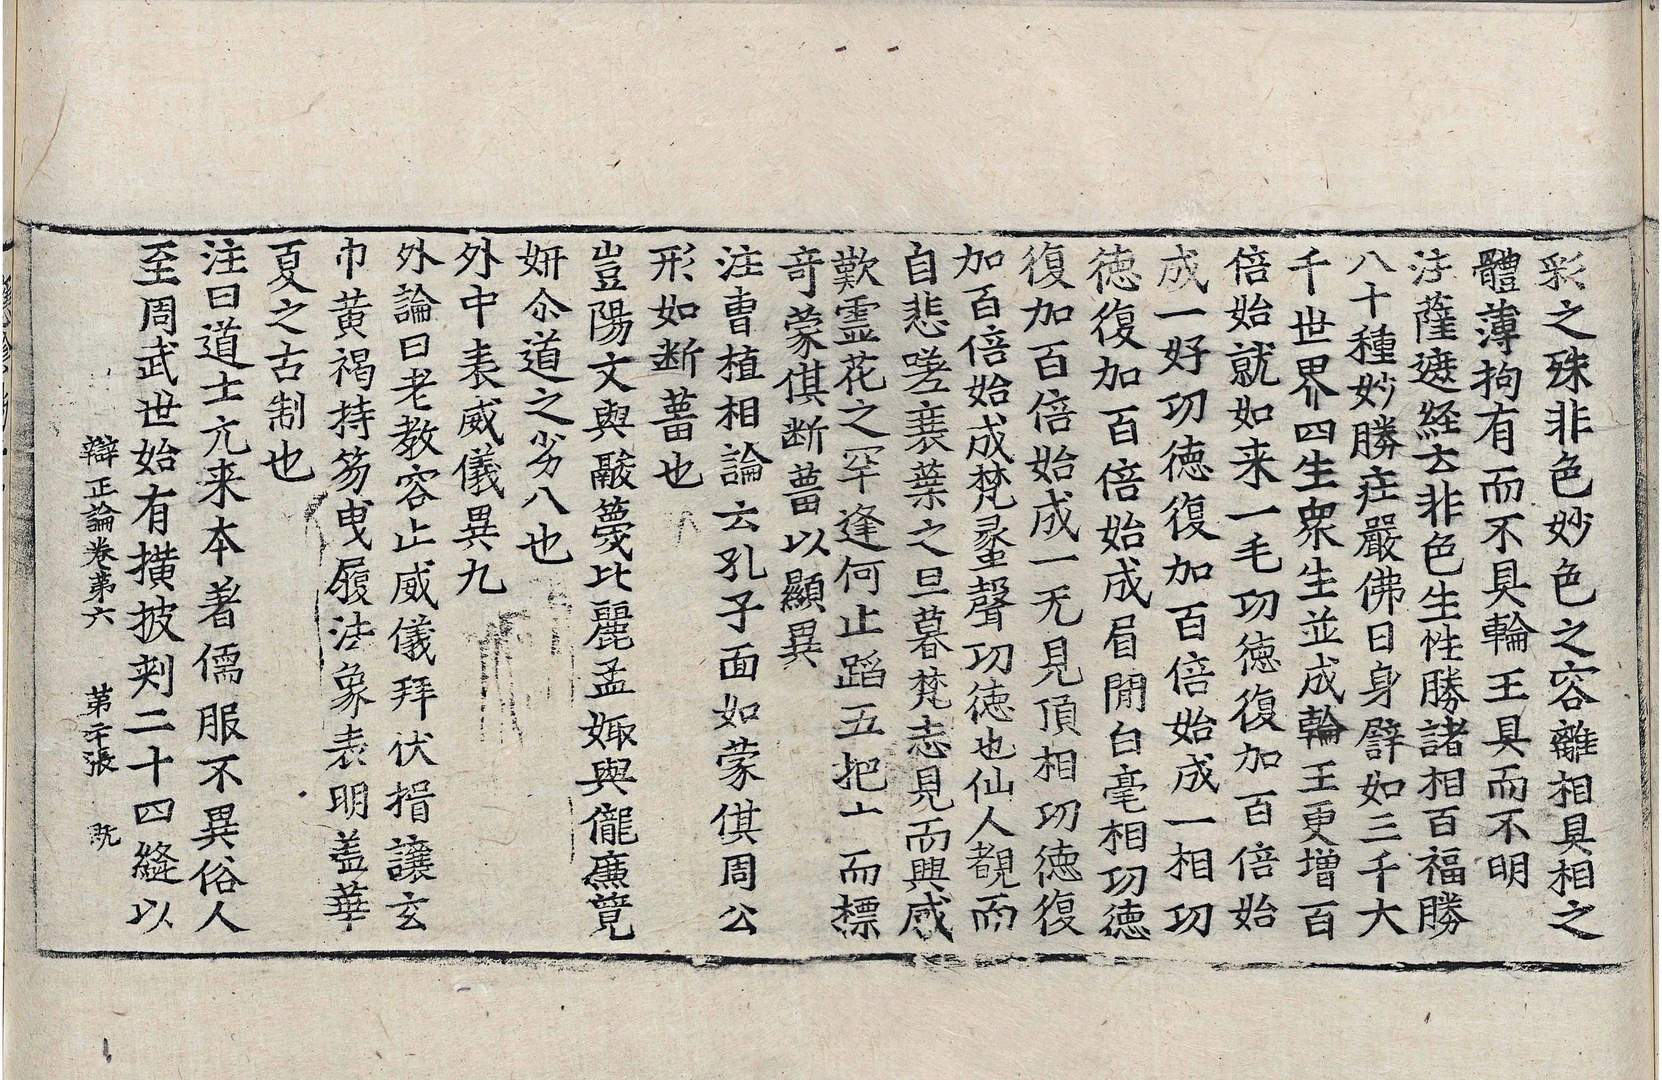 彩之殊非色妙色之容離相具相之
體薄拘有而不具輪王具而不明
注薩遮経云非色生性勝諸相百福勝
八十種妙勝㽵嚴佛日身譬如三千大
千世界四生衆生並成輪王更增百
倍始就如来一毛功徳復加百倍始
成一好功徳復加百倍始成一相功
徳復加百倍始成眉間白毫相功徳
復加百倍始成一无見頂相功徳復
加百倍始成梵䗍聲功徳也仙人覩而
自悲嗟衰葉之旦暮梵志見而興感
歎霊花之罕逢何止蹈五把十而標
竒蒙倛断菑以顯異
注曺植相論云孔子面如蒙倛周公
形如断菑也
豈陽文與鬷蔑比麗孟娵與儱廉覓
妍尒道之劣八也
外中表威儀異九
外論曰老教容止威儀拜伏揖讓玄
巾黄褐持笏曳履法象表明盖華
夏之古制也
注曰道士亢来本著儒服不異俗人
至周武世始有横披刾二十四縫以
辯正論卷第六 第二十張 旣